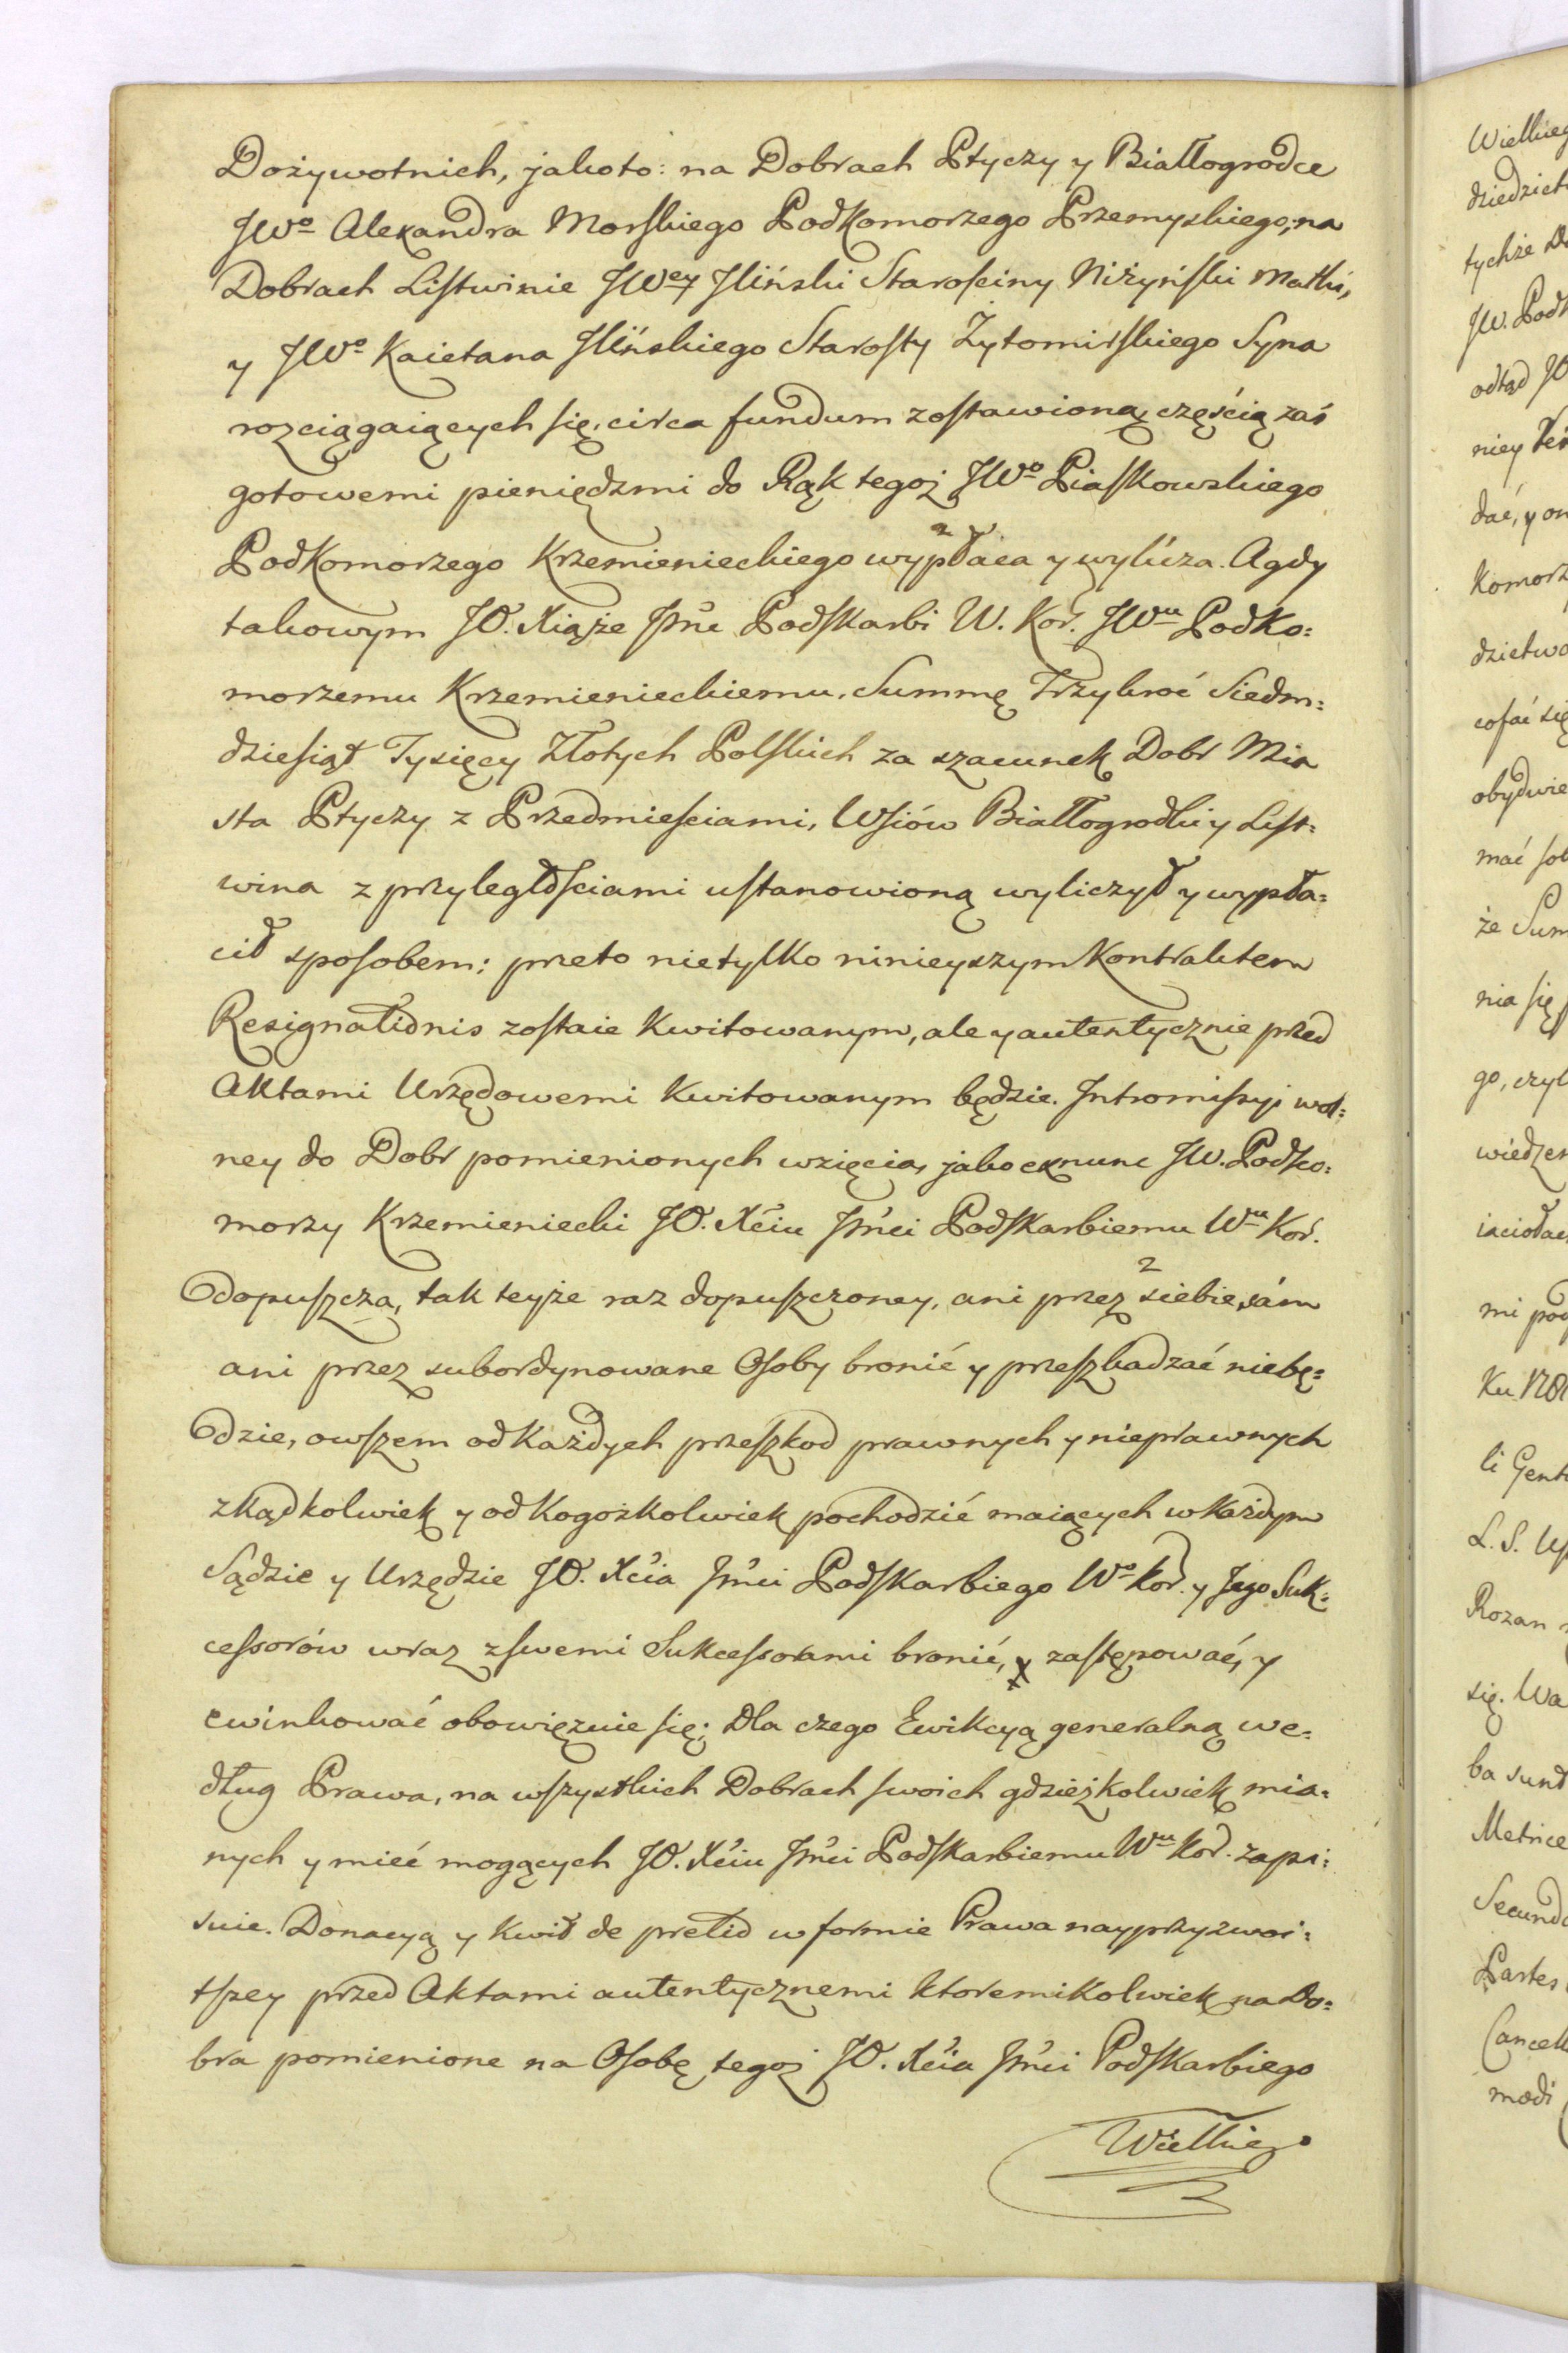 Dożywotnich, jakoto: na Dobrach Ptyczy y Białłogrodce
JWo Alexandra Morskiego Podkomorzego Przemyskiego, na
Dobrach Listwinie JWey Jliński Starościny Niżyński Matki,
y JWo Kaietana Jlińskiego Starosty Żytomirskiego Syna
rozciągaiących się, circa fundum zostawioną, częścią zaś
gotowemi pieniędzmi do Rąk tegoż JWo Piaskowskiego
Podkomorzego Krzemienieckiego wypłaca y wylicza. A gdy
takowym JO. Xiąże Jmć Podskarbi W. Kor. JWu Podko=
morzemu Krzemienieckiemu, Summę Trzykroć Siedm=
dziesiąt Tysięcy Złotych Polskich za szacunek Dobr Mia
sta Ptyczy z Przedmieściami, Wsiów Białłogrodki y List=
wina z przyległościami ustanowioną wyliczył y wypła=
cił sposobem: przeto nietylko ninieyszym Kontraktem
Resignationis zostaie Kwitowanym, ale y autentycznie przed
Aktami Urzędowemi Kwitowanym będzie. Intromissyi wol=
ney do Dobr pomienionych wzięcia, jako exnunc JW. Podko=
morzy Krzemieniecki JO. Xciu Jmci Podskarbiemu Wu Kor.
dopuszcza, tak teyże raz dopuszczoney, ani przez siebie sám
ani przez subordynowane Osoby bronić y przeszkadzać niebę=
dzie, owszem od Każdych przeszkod prawnych y nieprawnych
zkądkolwiek y od Kogożkolwiek pochodzić maiących w Każdym
Sądzie y Urzędzie JO. Xcia Jmci Podskarbiego Wo Kor. y Jego Suk=
cessorów wraz z swemi Sukcessorami bronić, y zastępować, y
ewinkować obowięzuie się; Dla czego Ewikcyą generalną we=
dług Prawa, na wszystkich Dobrach swoich gdzieżkolwiek mia=
nych y mieć mogących JO. Xciu Jmci Podskarbiemu Wu Kor. zapi=
suie. Donacyą y Kwit de pretio w formie Prawa nayprzyzwoi=
tszey przed Aktami autentycznemi ktoremikolwiek na Do=
bra pomienione na Osobę tegoż JO. Xcia Jmci Podskarbiego
Wielkiego